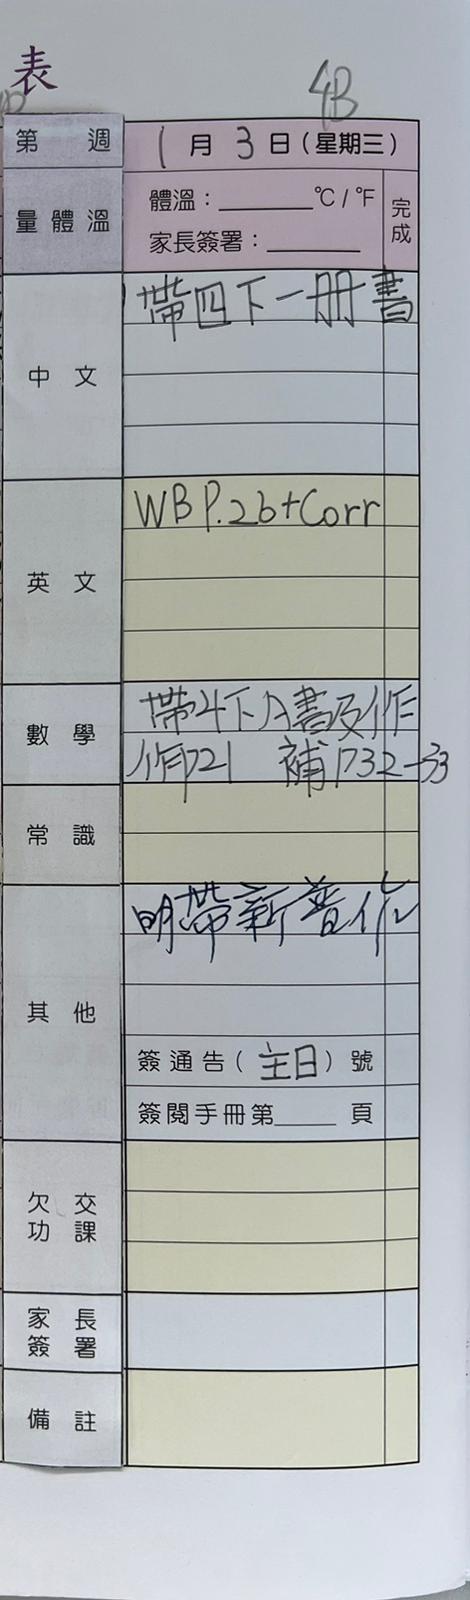 表
4B
第 週 1月3日(星期三)
量體溫 體溫：______℃/℉ 完成
家長簽署：______
中文 帶四下一冊書
英文 WB P.26+Corr
數學 帶4下A書及作
作P21 補P32-33
常識
其他 明帶新普作
簽通告(主日)號
簽閱手冊第____頁
欠交功課
家長簽署
備註